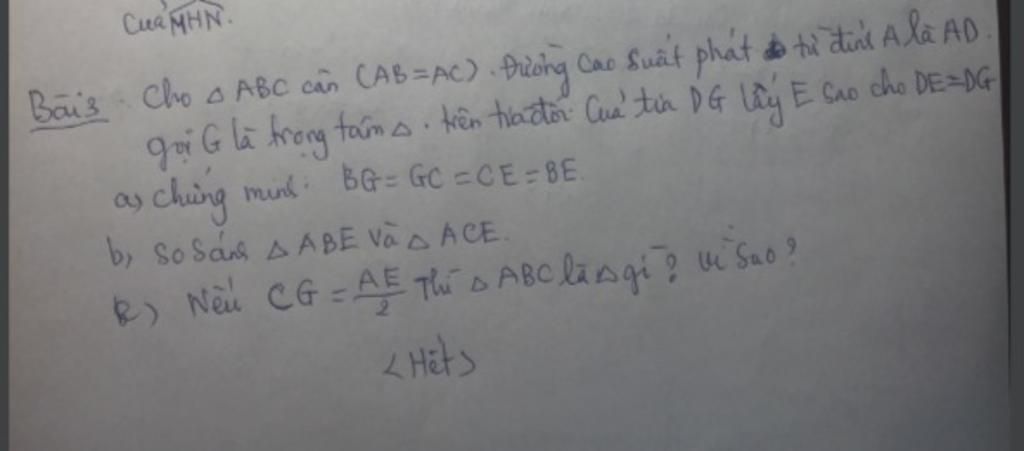 Của MHN.
Bài 3. Cho △ ABC cân (AB=AC). Đường cao suất phát từ đỉnh A là AD.
gọi G là trọng tâm △. trên tia đối của tia DG lấy E sao cho DE=DG
a, chứng minh: BG = GC = CE = BE.
b, so sánh △ ABE và △ ACE.
c) Nếu CG = AE/2 Thì △ ABC là △ gì? Vì sao?
<Hết>